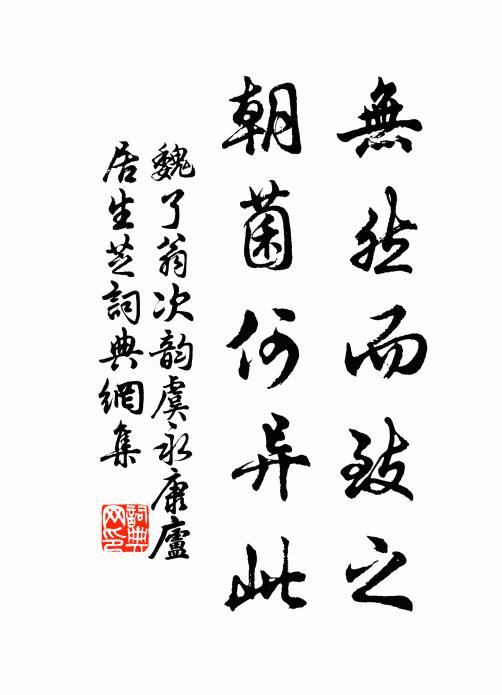 無然而致之
朝菌何异此
魏了翁次韵虞永康廬
居生芝詞典網集
詞典
网印